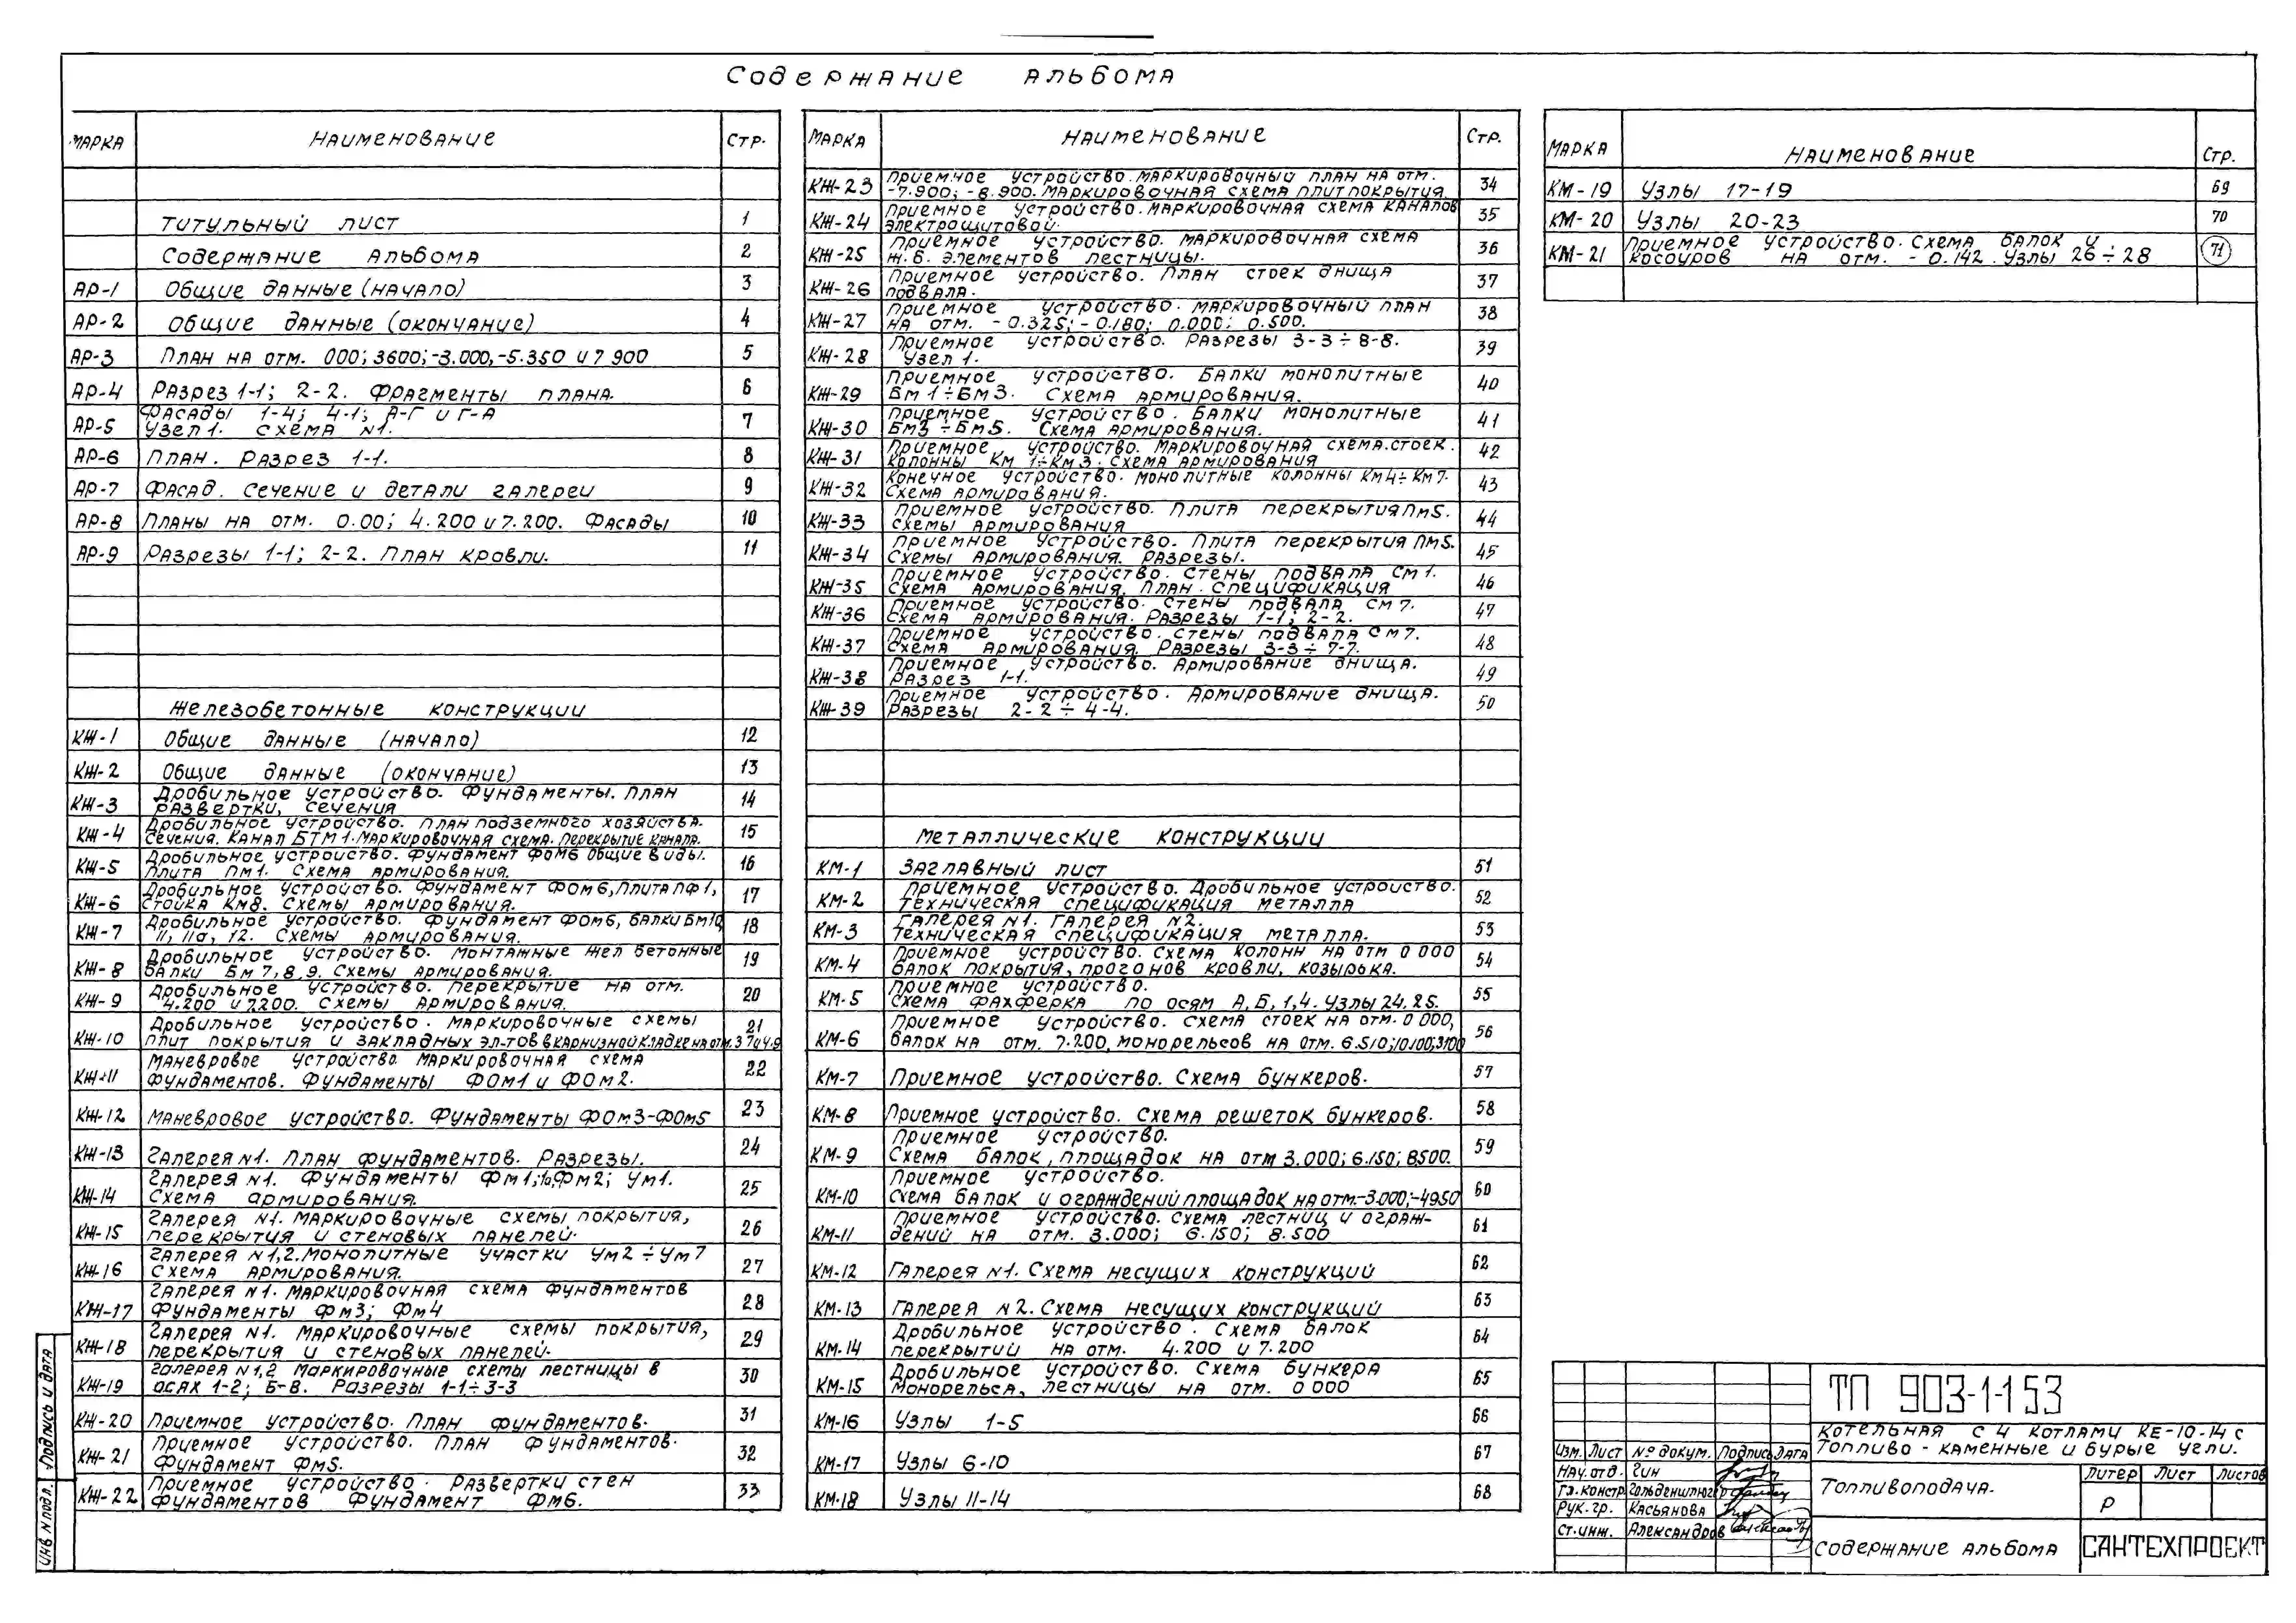 Содержание альбома
Марка Наименование Стр.
Титульный лист 1
Содержание альбома 2
АР-1 Общие данные (начало) 3
АР-2 Общие данные (окончание) 4
АР-3 План на отм. 000; 3600; -3.000, -5.350 и 7 900 5
АР-4 Разрез 1-1; 2-2. Фрагменты плана. 6
АР-5 Фасады 1-4; 4-1; А-Г и Г-А
Узел 1. Схема N1. 7
АР-6 План. Разрез 1-1. 8
АР-7 Фасад. Сечение и детали галереи 9
АР-8 Планы на отм. 0.00; 4.200 и 7.200. Фасады 10
АР-9 Разрезы 1-1; 2-2. План кровли. 11
Железобетонные конструкции
КЖ-1 Общие данные (начало) 12
КЖ-2 Общие данные (окончание) 13
КЖ-3 Дробильное устройство. Фундаменты. План
развертки, сечения 14
КЖ-4 Дробильное устройство. План подземного хозяйства.
Сечения. Канал БТМ1. Маркировочная схема. Перекрытие канала. 15
КЖ-5 Дробильное устройство. Фундамент ФОМ6 Общие виды.
Плита ПМ1. Схема армирования. 16
КЖ-6 Дробильное устройство. Фундамент ФОМ6, Плита ПФ1,
Стойка КМ8. Схемы армирования. 17
КЖ-7 Дробильное устройство. Фундамент ФОМ6, балки БМ10,
11, 11а, 12. Схемы армирования. 18
КЖ-8 Дробильное устройство. Монтажные жел бетонные
балки БМ 7, 8, 9. Схемы армирования. 19
КЖ-9 Дробильное устройство. Перекрытие на отм.
4.200 и 7.200. Схемы армирования. 20
КЖ-10 Дробильное устройство. Маркировочные схемы
плит покрытия и закладных эл-тов в карнизной кладке на отм. 21
КЖ-11 Маневровое устройство маркировочная схема
фундаментов. Фундаменты ФОМ1 и ФОМ2. 22
КЖ-12 Маневровое устройство. Фундаменты ФОМ3-ФОМ5 23
КЖ-13 Галерея N1. План фундаментов. Разрезы. 24
КЖ-14 Галерея N1. Фундаменты ФМ1,1а, ФМ2; УМ1.
Схема армирования. 25
КЖ-15 Галерея N1. Маркировочные схемы покрытия,
перекрытия и стеновых панелей. 26
КЖ-16 Галерея N1,2. Монолитные участки УМ2÷УМ7
Схема армирования. 27
КЖ-17 Галерея N1. Маркировочная схема фундаментов
Фундаменты ФМ3; ФМ4 28
КЖ-18 Галерея N1. Маркировочные схемы покрытия,
перекрытия и стеновых панелей. 29
КЖ-19 Галерея N1,2 Маркировочные схемы лестницы в
осях 1-2; Б-В. Разрезы 1-1÷3-3 30
КЖ-20 Приемное устройство. План фундаментов. 31
КЖ-21 Приемное устройство. План фундаментов.
Фундамент ФМ5. 32
КЖ-22 Приемное устройство. Развертки стен
фундаментов Фундамент ФМ6. 33
Марка Наименование Стр.
КЖ-23 Приемное устройство. Маркировочный план на отм.
-7.900; -8.900. Маркировочная схема плит покрытия 34
КЖ-24 Приемное устройство. Маркировочная схема каналов
электрощитовой. 35
КЖ-25 Приемное устройство. Маркировочная схема
ж.б. элементов лестницы. 36
КЖ-26 Приемное устройство. План стоек днища
подвала. 37
КЖ-27 Приемное устройство. Маркировочный план
на отм. -0.325; -0.180; 0.000; 0.500. 38
КЖ-28 Приемное устройство. Разрезы 3-3÷8-8.
Узел 1. 39
КЖ-29 Приемное устройство. Балки монолитные
БМ1÷БМ3. Схема армирования. 40
КЖ-30 Приемное устройство. Балки монолитные
БМ3÷БМ5. Схема армирования. 41
КЖ-31 Приемное устройство. Маркировочная схема стоек.
Колонны КМ 1÷КМ3. Схема армирования 42
КЖ-32 Конечное устройство. Монолитные колонны КМ4÷КМ7.
Схема армирования. 43
КЖ-33 Приемное устройство. Плита перекрытия ПМ5.
Схемы армирования 44
КЖ-34 Приемное устройство. Плита перекрытия ПМ5.
Схемы армирования. Разрезы. 45
КЖ-35 Приемное устройство. Стены подвала СМ1.
Схема армирования. План. Спецификация 46
КЖ-36 Приемное устройство. Стены подвала СМ7.
Схема армирования. Разрезы 1-1; 2-2. 47
КЖ-37 Приемное устройство. Стены подвала СМ7.
Схема армирования. Разрезы 3-3÷7-7. 48
КЖ-38 Приемное устройство. Армирование днища.
Разрез 1-1. 49
КЖ-39 Приемное устройство. Армирование днища.
Разрезы 2-2÷4-4. 50
Металлические конструкции
КМ-1 Заглавный лист 51
КМ-2 Приемное устройство. Дробильное устройство.
Техническая спецификация металла 52
КМ-3 Галерея N1. Галерея N2.
Техническая спецификация металла. 53
КМ-4 Приемное устройство. Схема колонн на отм 0 000
балок покрытия, прогонов кровли, козырька. 54
КМ-5 Приемное устройство.
Схема фахферка по осям А, Б, 1, 4. Узлы 24, 25. 55
КМ-6 Приемное устройство. Схема стоек на отм. 0 000,
балок на отм. 7.200, монорельсов на отм. 6.510; 56
КМ-7 Приемное устройство. Схема бункеров. 57
КМ-8 Приемное устройство. Схема решеток бункеров. 58
КМ-9 Приемное устройство.
Схема балок, площадок на отм 3.000; 6.150; 8.500. 59
КМ-10 Приемное устройство.
Схема балок и ограждений площадок на отм.-3.000; -4.950 60
КМ-11 Приемное устройство. Схема лестниц и ограж-
дений на отм. 3.000; 6.150; 8.500 61
КМ-12 Галерея N1. Схема несущих конструкций 62
КМ-13 Галерея N2. Схема несущих конструкций 63
КМ-14 Дробильное устройство. Схема балок
перекрытий на отм. 4.200 и 7.200 64
КМ-15 Дробильное устройство. Схема бункера
Монорельса, лестницы на отм. 0 000 65
КМ-16 Узлы 1-5 66
КМ-17 Узлы 6-10 67
КМ-18 Узлы 11-14 68
Марка Наименование Стр.
КМ-19 Узлы 17-19 69
КМ-20 Узлы 20-23 70
КМ-21 Приемное устройство. Схема балок и
косоуров на отм. -0.142. Узлы 26÷28 71
ТП 903-1-153
Котельная с 4 котлами КЕ-10-14 с
Топливо - каменные и бурые угли.
Изм. Лист № докум. Подпись Дата
Нач. отд. Гин
Гл. констр Гольденштюгер
Рук. гр. Касьянова
Ст. инж. Александров
Топливоподача.
Литер Лист Листов
Р
Содержание альбома
САНТЕХПРОЕКТ
Подпись и дата
Инв N подл.